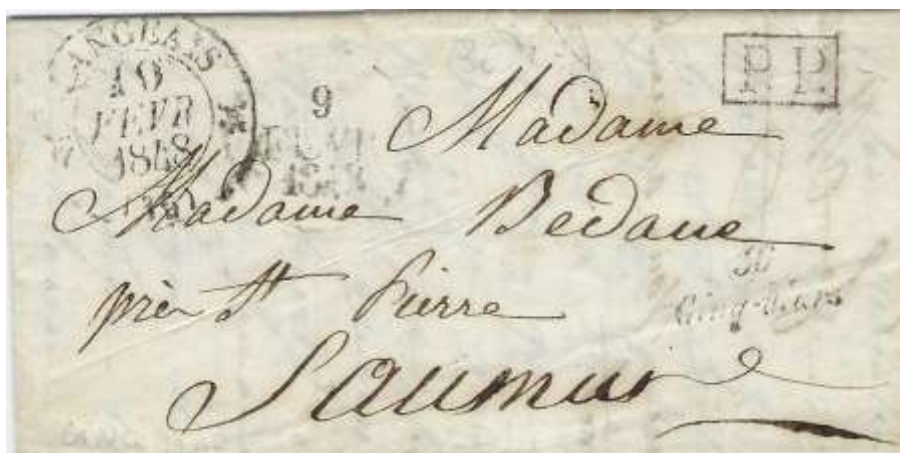 LANGEAIS
10
FEVR
1848
9
P.P.
Madame
Madame Bedane
près St Pierre
Saumur
36
Cinq-Mars